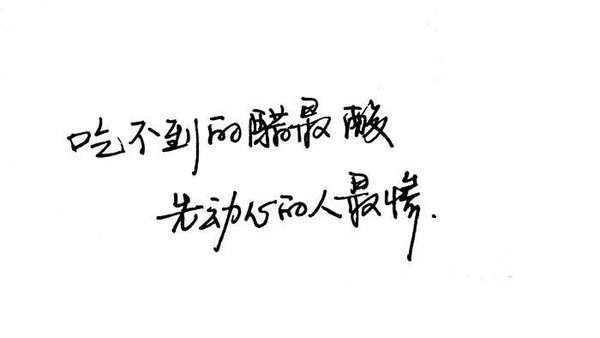 吃不到的醋最酸
先动心的人最惨.